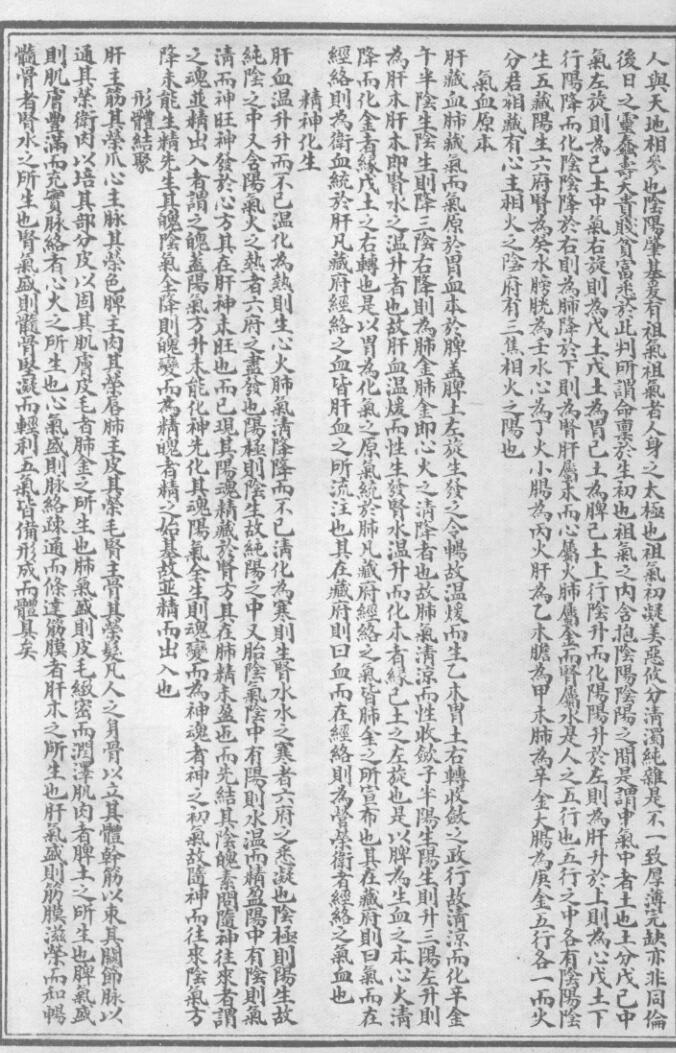 人與天地相參也陰陽肇基爰有祖氣祖氣者人身之太極也祖氣初凝美惡攸分清濁純雜是不一致厚薄完缺亦非同倫
後日之靈蠢壽夭貴賤貧富悉於此判所謂命稟於生初也祖氣之內含抱陰陽陰陽之間是謂中氣中者土也土分戊己中
氣左旋則為己土中氣右旋則為戊土戊土為胃己土為脾己土上行陰升而化陽陽升於左則為肝升於上則為心戊土下
行陽降而化陰陰降於右則為肺降於下則為腎肝屬木而心屬火肺屬金而腎屬水是人之五行也五行之中各有陰陽陰
生五藏陽生六府腎為癸水膀胱為壬水心為丁火小腸為丙火肝為乙木膽為甲木肺為辛金大腸為庚金五行各一而火
分君相藏有心主相火之陰府有三焦相火之陽也
氣血原本
肝藏血肺藏氣而氣原於胃血本於脾蓋脾土左旋生發之令暢故溫煖而生乙木胃土右轉收斂之政行故清涼而化辛金
午半陰生陰生則降三陰右降則為肺金肺金即心火之清降者也故肺氣清涼而性收斂子半陽生陽生則升三陽左升則
為肝木肝木即腎水之溫升者也故肝血溫煖而性生發腎水溫升而化木者緣己土之左旋也是以脾為生血之本心火清
降而化金者緣戊土之右轉也是以胃為化氣之原氣統於肺凡藏府經絡之氣皆肺金之所宣布也其在藏府則曰氣而在
經絡則為衛血統於肝凡藏府經絡之血皆肝血之所流注也其在藏府則曰血而在經絡則為營榮衛者經絡之氣血也
精神化生
肝血溫升升而不已溫化為熱則生心火肺氣清降降而不已清化為寒則生腎水水之寒者六府之悉凝也陰極則陽生故
純陰之中又含陽氣火之熱者六府之盡發也陽極則陰生故純陽之中又胎陰氣陰中有陽則水溫而精盈陽中有陰則氣
清而神旺神發於心方其在肝神未旺也而已現其陽魂精藏於腎方其在肺精未盈也而先結其陰魄素問隨神往來者謂
之魂並精出入者謂之魄蓋陽氣方升未能化神先化其魂陽氣全生則魂變而為神魂者神之初氣故隨神而往來陰氣方
降未能生精先生其魄陰氣全降則魄變而為精魄者精之始基故並精而出入也
形體結聚
肝主筋其榮爪心主脉其榮色脾主肉其榮唇肺主皮其榮毛腎主骨其榮髮凡人之身骨以立其體幹筋以束其關節脉以
通其榮衛肉以培其部分皮以固其肌膚皮毛者肺金之所生也肺氣盛則皮毛緻密而潤澤肌肉者脾土之所生也脾氣盛
則肌膚豐滿而充實脉絡者心火之所生也心氣盛則脉絡疎通而條達筋膜者肝木之所生也肝氣盛則筋膜滋榮而和暢
髓骨者腎水之所生也腎氣盛則髓骨堅凝而輕利五氣皆備形成而體具矣